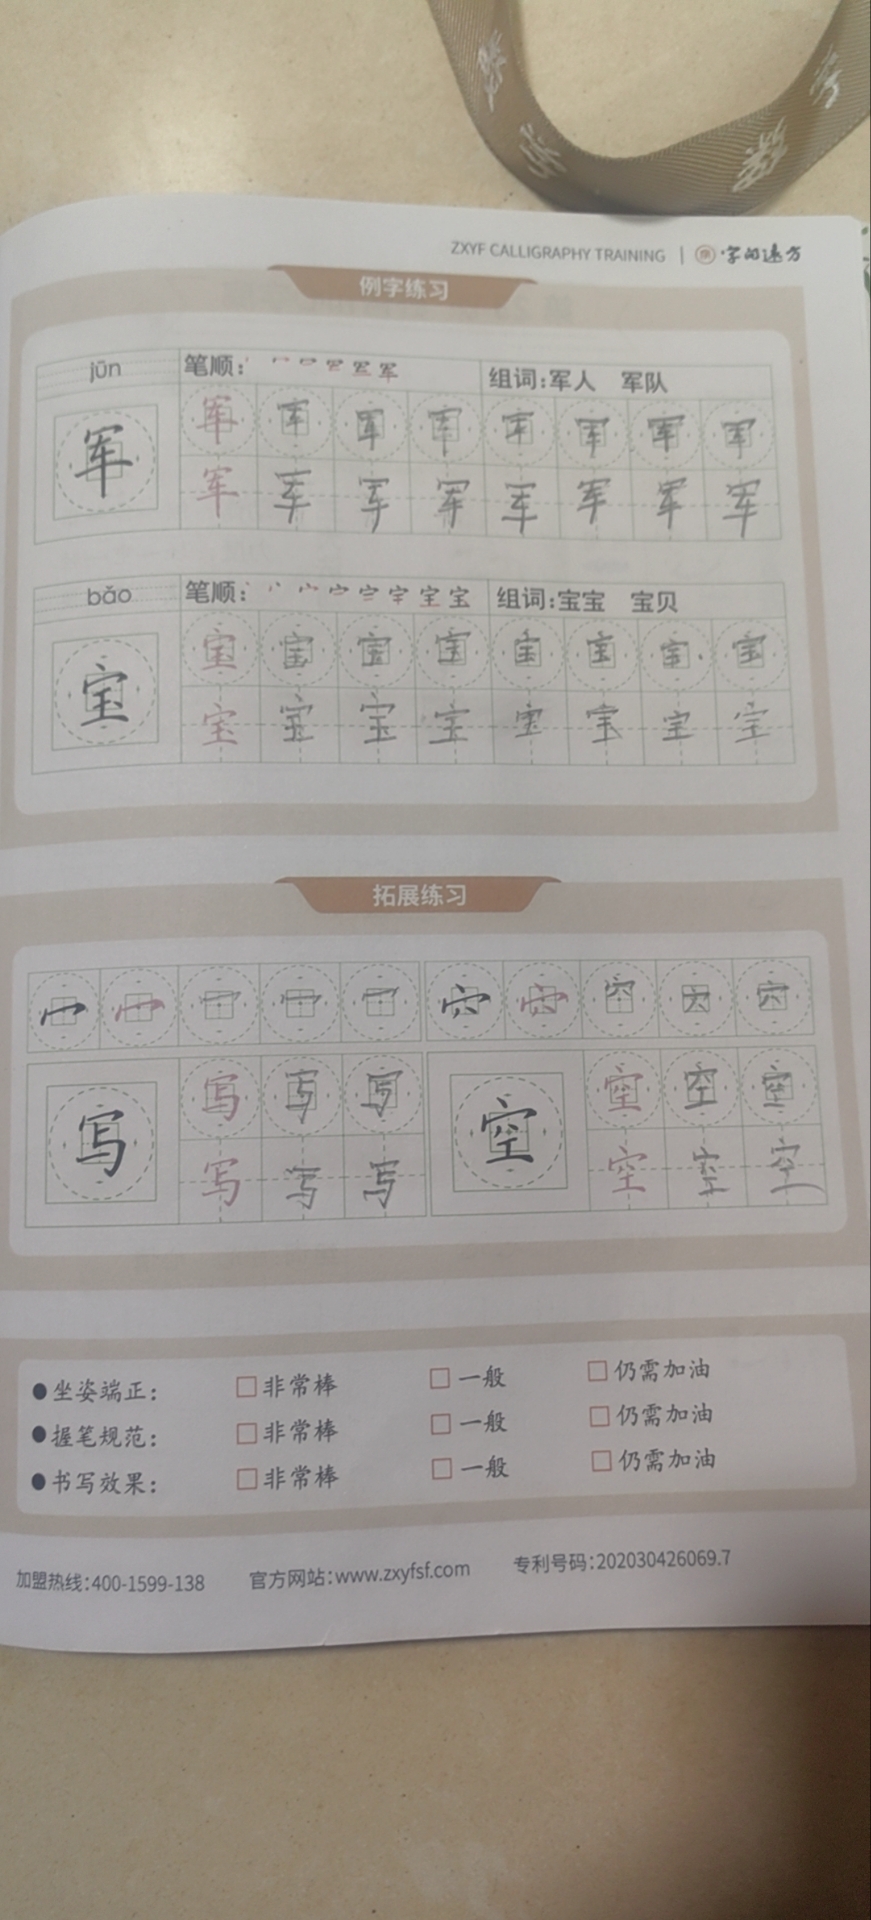 ZXYF CALLIGRAPHY TRAINING | 字的远方
例字练习
jūn 笔顺: 组词:军人 军队
军 军 军 军 军 军 军 军 军
军 军 军 军 军 军 军 军
bǎo 笔顺: 组词:宝宝 宝贝
宝 宝 宝 宝 宝 宝 宝 宝 宝
宝 宝 宝 宝 宝 宝 宝 宝
拓展练习
冖 冖 冖 冖 冖 穴 穴 穴 穴 穴
写 写 写 写 空 空 空 空
写 写 写 空 空 空
●坐姿端正: □非常棒 □一般 □仍需加油
●握笔规范: □非常棒 □一般 □仍需加油
●书写效果: □非常棒 □一般 □仍需加油
加盟热线:400-1599-138 官方网站:www.zxyfsf.com 专利号码:202030426069.7